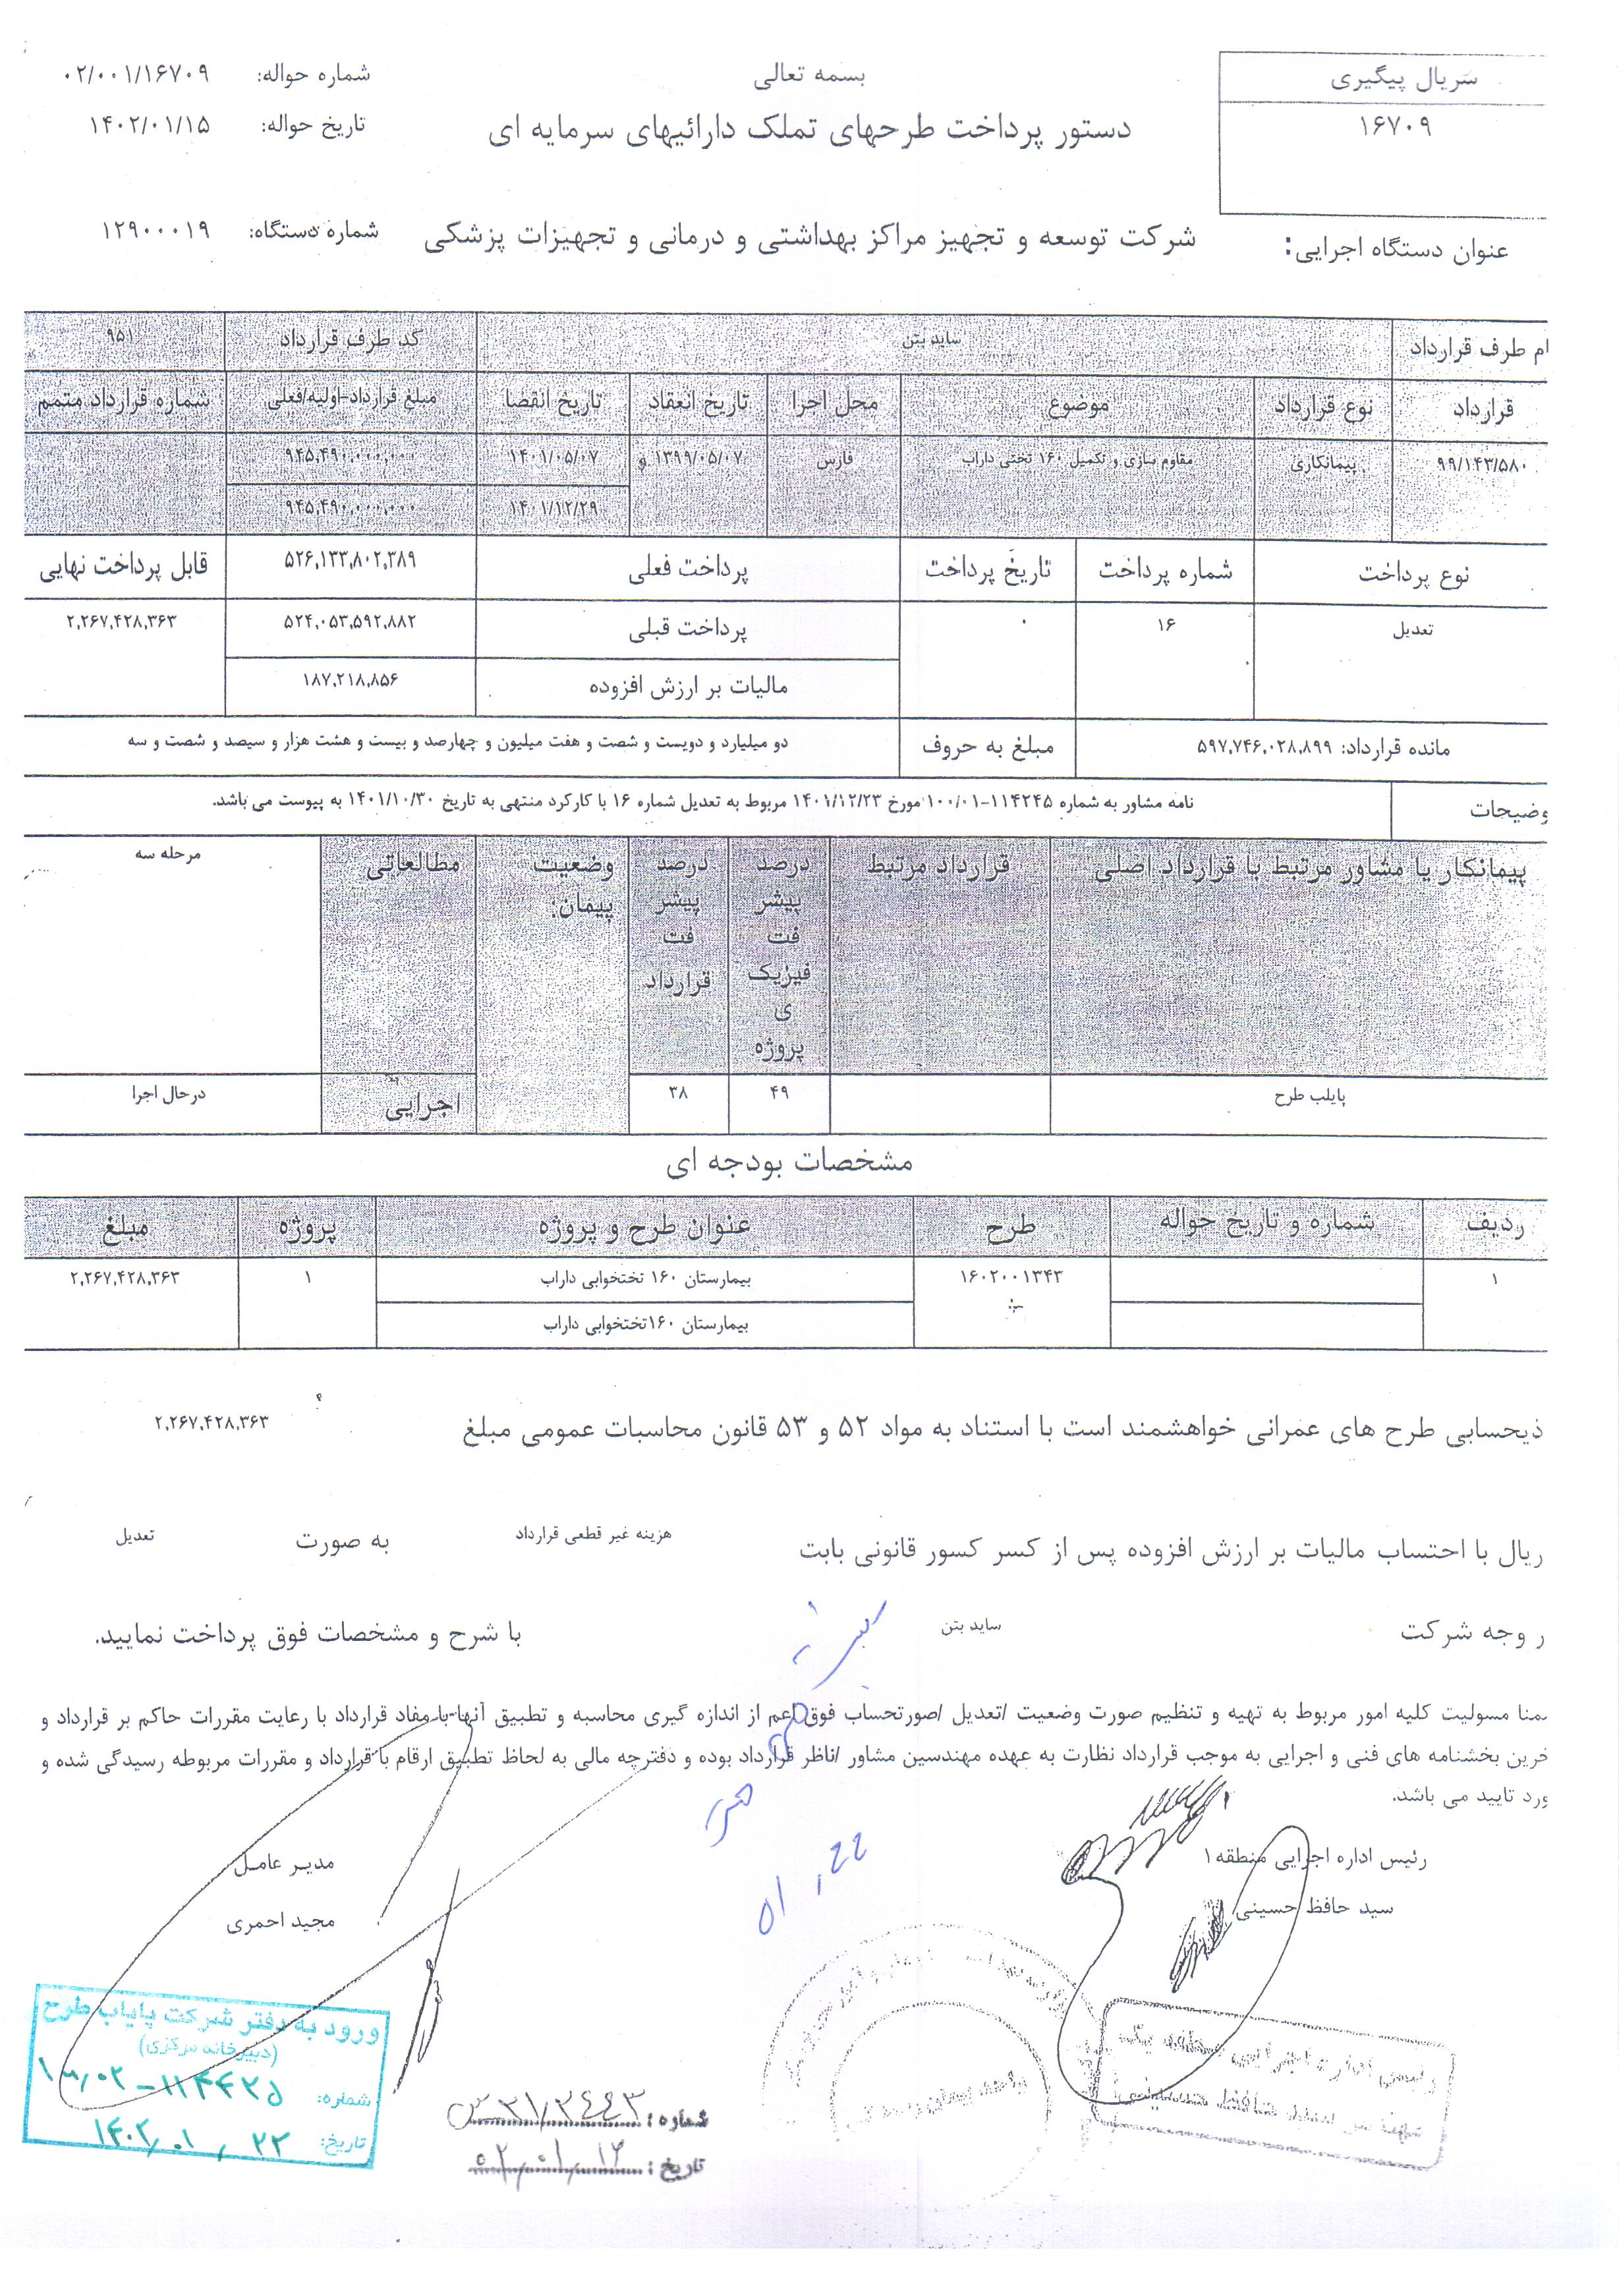 بسمه تعالی
سریال پیگیری
۱۶۷۰۹
شماره حواله: ۰۲/۰۰۱/۱۶۷۰۹
تاریخ حواله: ۱۴۰۲/۰۱/۱۵
دستور پرداخت طرحهای تملک دارائیهای سرمایه ای
عنوان دستگاه اجرایی: شرکت توسعه و تجهیز مراکز بهداشتی و درمانی و تجهیزات پزشکی
شماره دستگاه: ۱۲۹۰۰۰۱۹
ام طرف قرارداد ساید بتن کد طرف قرارداد ۹۵۱
قرارداد نوع قرارداد موضوع محل اجرا تاریخ انعقاد تاریخ انقضا مبلغ قرارداد-اولیه/فعلی شماره قرارداد متمم
۹۹/۱۴۳/۵۸۰ پیمانکاری مقاوم سازی و تکمیل ۱۶۰ تختی داراب فارس ۱۳۹۹/۰۵/۰۷ ۱۴۰۱/۰۵/۰۷ ۹۴۵,۴۹۰,۰۰۰,۰۰۰
۱۴۰۱/۱۲/۲۹ ۹۴۵,۴۹۰,۰۰۰,۰۰۰
نوع پرداخت شماره پرداخت تاریخ پرداخت پرداخت فعلی ۵۲۶,۱۳۳,۸۰۲,۳۸۹ قابل پرداخت نهایی
تعدیل ۱۶ ۰ پرداخت قبلی ۵۲۴,۰۵۳,۵۹۲,۸۸۲ ۲,۲۶۷,۴۲۸,۳۶۳
مالیات بر ارزش افزوده ۱۸۷,۲۱۸,۸۵۶
مانده قرارداد: ۵۹۷,۷۴۶,۰۲۸,۸۹۹ مبلغ به حروف دو میلیارد و دویست و شصت و هفت میلیون و چهارصد و بیست و هشت هزار و سیصد و شصت و سه
وضیحات نامه مشاور به شماره ۱۱۴۲۴۵-۱۰۰/۰۱ مورخ ۱۴۰۱/۱۲/۲۳ مربوط به تعدیل شماره ۱۶ با کارکرد منتهی به تاریخ ۱۴۰۱/۱۰/۳۰ به پیوست می باشد.
پیمانکار یا مشاور مرتبط با قرارداد اصلی قرارداد مرتبط درصد پیشرفت فیزیکی پروژه درصد پیشرفت قرارداد وضعیت پیمان: مطالعاتی مرحله سه
پایلب طرح ۴۹ ۳۸ اجرایی درحال اجرا
مشخصات بودجه ای
ردیف شماره و تاریخ حواله طرح عنوان طرح و پروژه پروژه مبلغ
۱ ۱۶۰۲۰۰۱۳۴۳ بیمارستان ۱۶۰ تختخوابی داراب ۱ ۲,۲۶۷,۴۲۸,۳۶۳
بیمارستان ۱۶۰تختخوابی داراب
ذیحسابی طرح های عمرانی خواهشمند است با استناد به مواد ۵۲ و ۵۳ قانون محاسبات عمومی مبلغ ۲,۲۶۷,۴۲۸,۳۶۳
ریال با احتساب مالیات بر ارزش افزوده پس از کسر کسور قانونی بابت هزینه غیر قطعی قرارداد به صورت تعدیل
ر وجه شرکت ساید بتن با شرح و مشخصات فوق پرداخت نمایید.
ضمنا مسولیت کلیه امور مربوط به تهیه و تنظیم صورت وضعیت /تعدیل /صورتحساب فوق اعم از اندازه گیری محاسبه و تطبیق آنها با مفاد قرارداد با رعایت مقررات حاکم بر قرارداد و
خرین بخشنامه های فنی و اجرایی به موجب قرارداد نظارت به عهده مهندسین مشاور /ناظر قرارداد بوده و دفترچه مالی به لحاظ تطبیق ارقام با قرارداد و مقررات مربوطه رسیدگی شده و
ورد تایید می باشد.
رئیس اداره اجرایی منطقه۱
سید حافظ حسینی
مدیر عامل
مجید احمری
۰۱/۲۲
رئیس اداره اجرایی منطقه یک
مهندس سید حافظ حسینی
شماره: ۳۱/۲۴۴۳س
تاریخ: ۰۲/۰۱/۱۶
ورود به دفتر شرکت پایاب طرح
(دبیرخانه مرکزی)
شماره: ۱۰۰/۰۲-۱۱۴۴۲۵
تاریخ: ۱۴۰۲/۰۱/۲۲